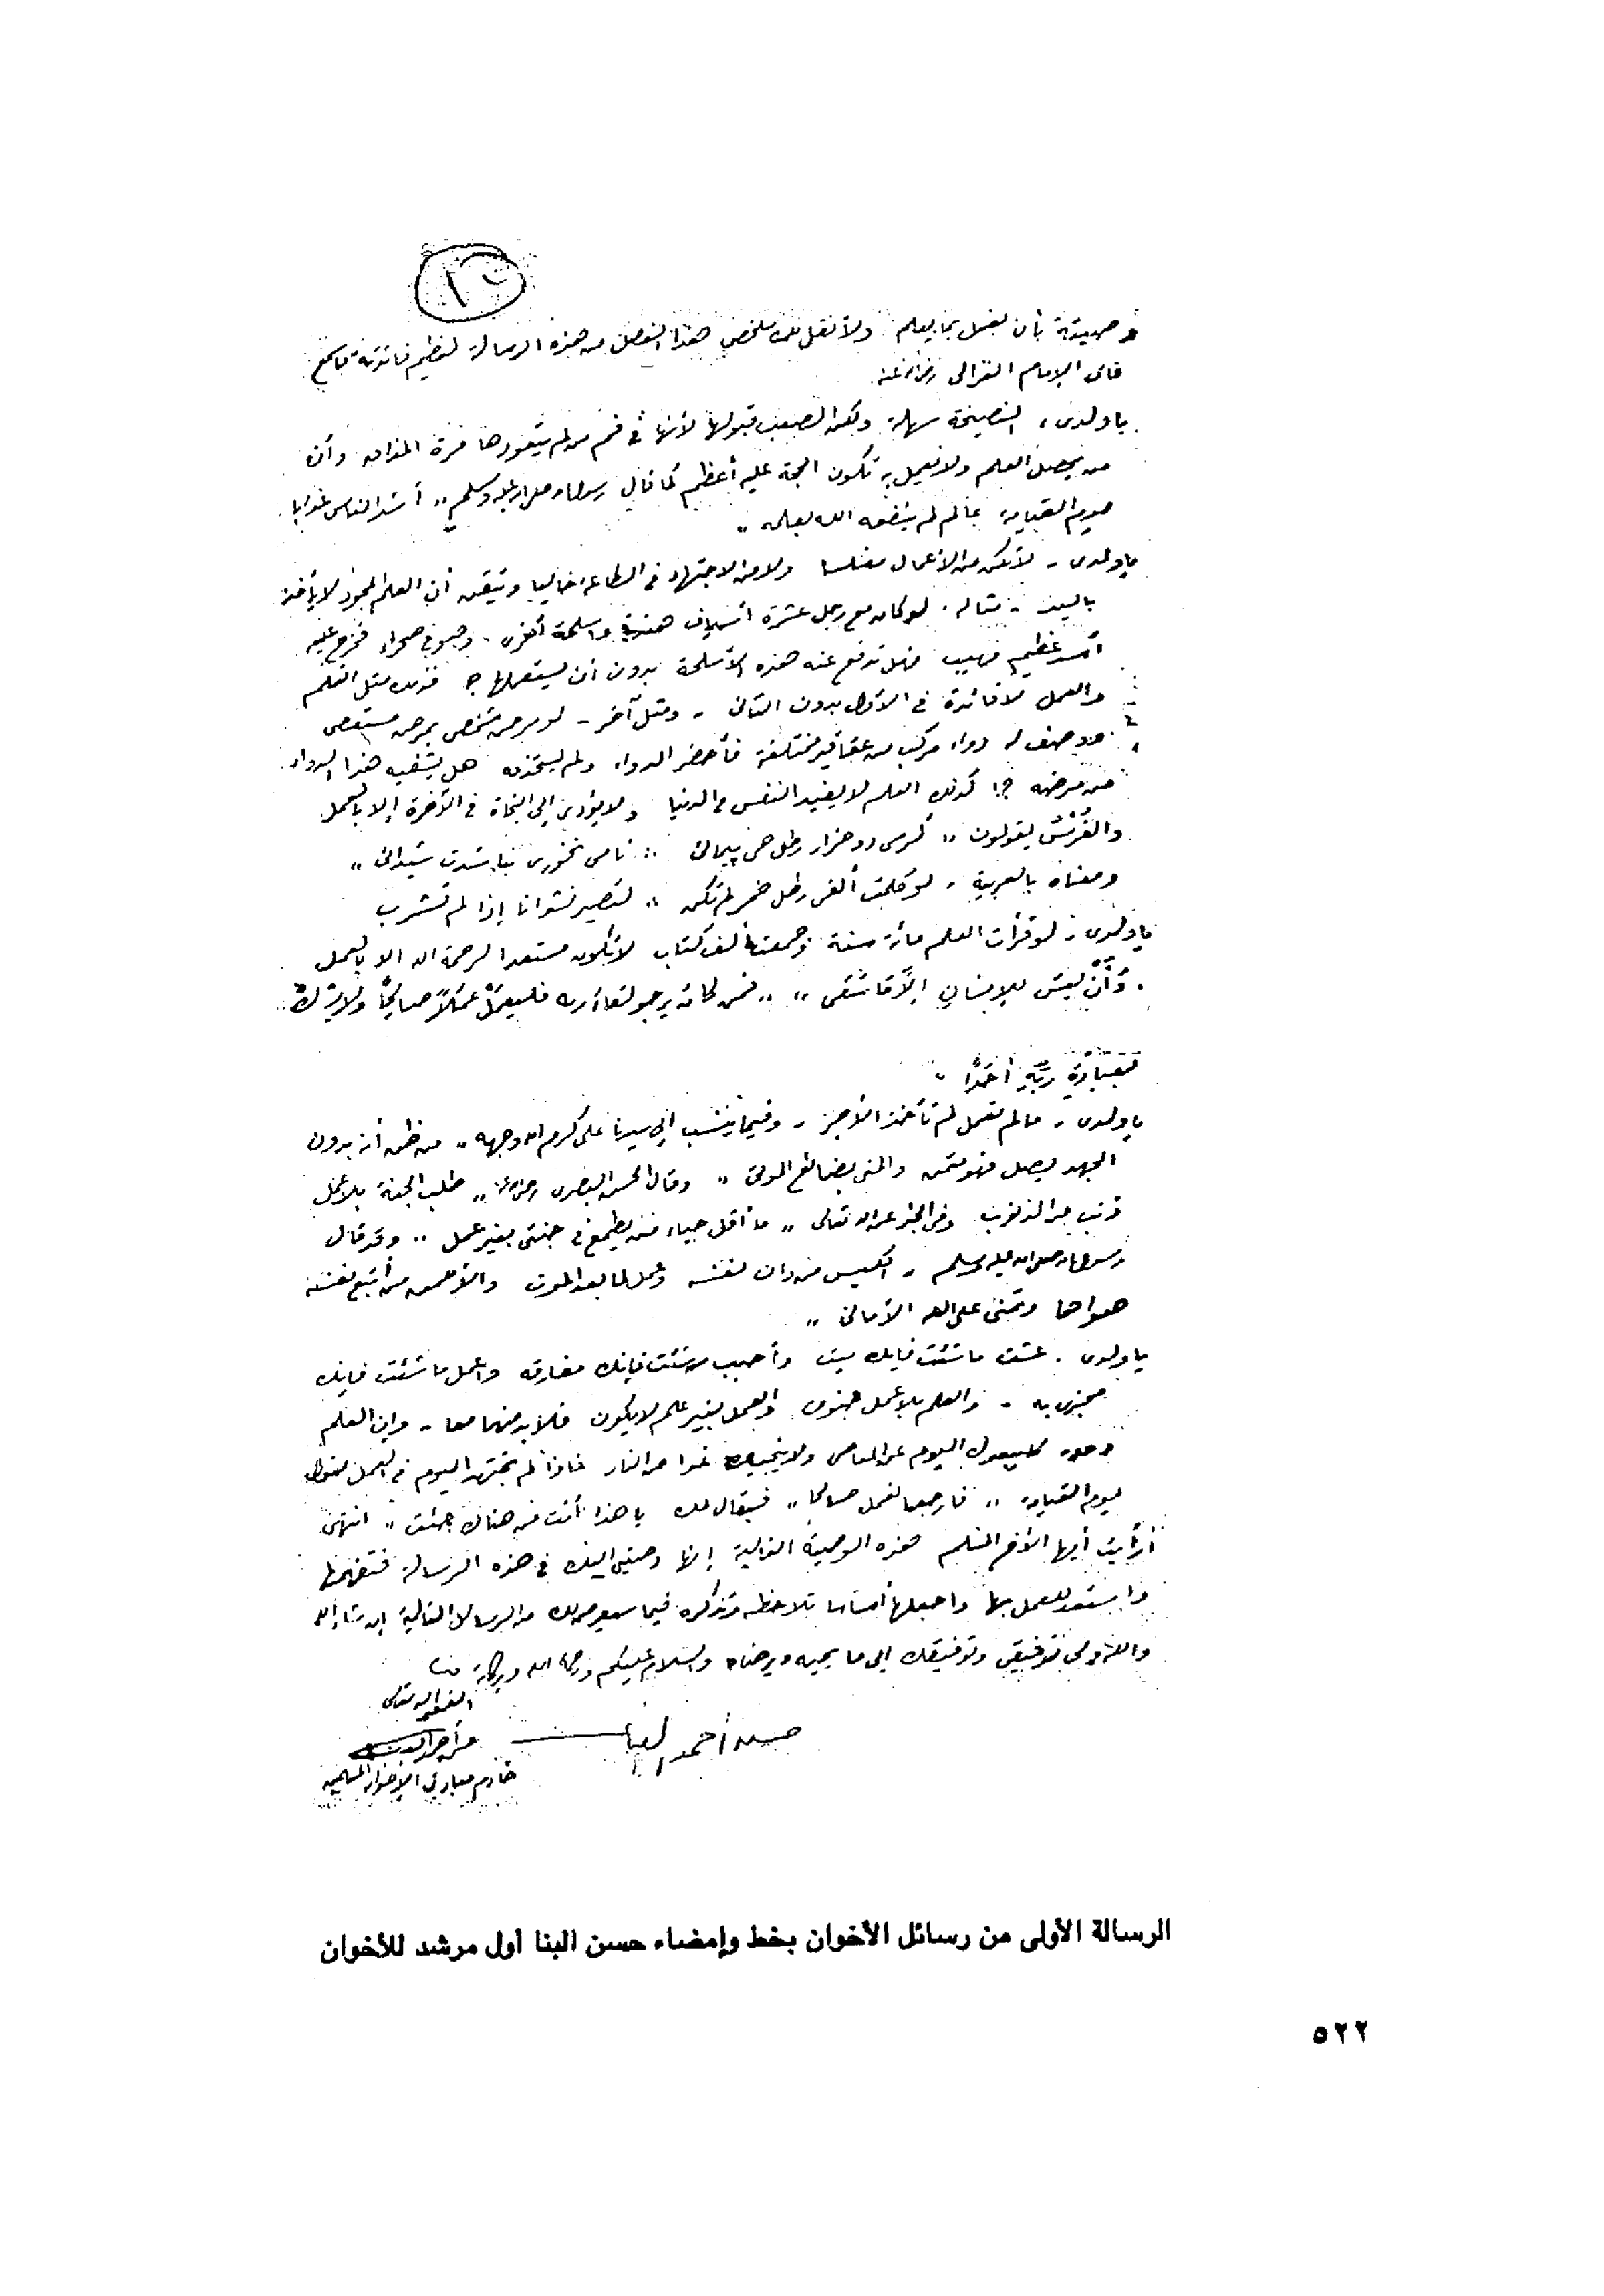 ٢٦
وصيته بأن يعمل بما يعلم ولأنقل لك ملخص هذا الفصل من هذه الرسالة لعظيم فائدته فاسمع
قال الإمام الغزالى رضى الله عنه
ياولدى، النصيحة سهلة ولكن الصعب قبولها لأنها فى فم من لم يتعودها مرة المذاق وأن
من يحصل العلم ولا يعمل به تكون الحجة عليه أعظم كما قال رسول الله صلى الله عليه وسلم " أشد الناس عذابا
يوم القيامة عالم لم ينفعه الله بعلمه "
ياولدى - لا تكن من الأعمال مفلسا ولا من الاجتهاد فى الطاعة خاليا وتيقن أن العلم المجرد لا يأخذ
باليد - مثاله . لو كان مع رجل عشرة أسياف هندية وأسلحة أخرى . وهو فى صحراء فخرج عليه
أسد عظيم مهيب فهل تدفع عنه هذه الأسلحة بدون أن يستعملها ؟ فكذلك مثل العلم
والعمل لا فائدة فى الأول بدون الثانى - ومثل آخر - لو مرض شخص بمرض مستعص
ووصف له دواء مركب من عقاقير مختلفة فأحضر الدواء ولم يستخدمه هل يشفيه هذا الدواء
من مرضه ؟! كذلك العلم لا يفيد النفس فى الدنيا ولا يؤدى إلى النجاة فى الآخرة إلا بالعمل
والفُرْسُ يقولون " كرمى دو هزار رطل همى پيمائى :: تامى نخورى نباشدت شيدائى "
ومعناه بالعربية . لو كلت ألفى رطل خمر لم تكن " لتصير نشوانا إذا لم تشرب
ياولدى . لو قرأت العلم مائة سنة وجمعت ألف كتاب لا تكون مستعدا لرحمة الله إلا بالعمل
. وَأَنْ لَيْسَ لِلإِنسَانِ إِلَّا مَا سَعَى " " فمن كان يرجو لقاء ربه فليعمل عملاً صالحًا ولا يشرك
بعبادة ربه أحدًا "
ياولدى - مالم تعمل لم تأخذ الأجر - وفيما ينسب إلى سيدنا على كرم الله وجهه " من ظن أنه بدون
الجهد يصل فهو متمن والمنى بضائع الموتى " وقال الحسن البصرى رضى الله عنه " طلب الجنة بلا عمل
ذنب من الذنوب وفى الخبر عن الله تعالى " ما أقل حياء من يطمع فى جنتى بغير عمل " وقد قال
رسول الله صلى الله عليه وسلم - الكيس من دان نفسه وعمل لما بعد الموت والأحمق من أتبع نفسه
هواها وتمنى على الله الأمانى "
ياولدى . عش ما شئت فإنك ميت وأحبب من شئت فإنك مفارقه واعمل ما شئت فإنك
مجزى به - والعلم بلا عمل جنون والعمل بغير علم لا يكون فلابد منهما معا - وإن العلم
وحده لا يبعدك اليوم عن المعاصى ولا ينجيك غدا من النار فإذا لم تجتهد اليوم فى العمل تقول
يوم القيامة " فارجعنا نعمل صالحا " فيقال لك يا هذا أنت من هناك جئت " انتهى
أرأيت أيها الأخ المسلم هذه الوصية الغالية إنها وصيتى إليك فى هذه الرسالة فتفهمها
واستعد للعمل بها واجعلها أساسا تلاحظه وتذكره فيما سيعرض لك من الرسائل التالية إن شاء الله
والله ولى توفيقى وتوفيقك إلى ما يحبه ويرضاه والسلام عليكم ورحمة الله وبركاته
الفقير إلى الله تعالى
حسن أحمد البنا
حسن أحمد البنا
خادم مبادئ الإخوان المسلمين
الرسالة الأولى من رسائل الأخوان بخط وإمضاء حسن البنا أول مرشد للأخوان
٥٢٢